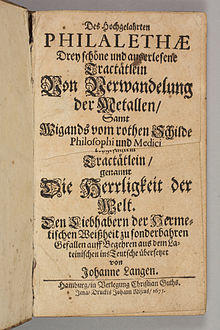 Des Hochgelahrten
PHILALETHÆ
Drey schöne und außerlesene
Tractätlein
Von Verwandelung
der Metallen/
Samt
Wigands vom rothen Schilde
Philosophi und Medici
Tractätlein/
genannt
Die Herrligkeit der
Welt.
Den Liebhabern der Herme-
tischen Weißheit zu sonderbahren
Gefallen auff Begehren aus dem La-
teinischen ins Teutsche übersetzet
von
Johanne Langen.
Hamburg/in Verlegung Christian Guths.
Jena/Druckts Johann Nisius/